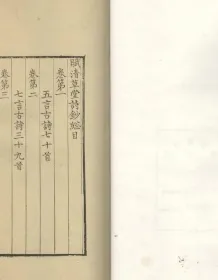 賦清草堂詩鈔總目
卷第一
五言古詩七十首
卷第二
七言古詩三十九首
卷第三